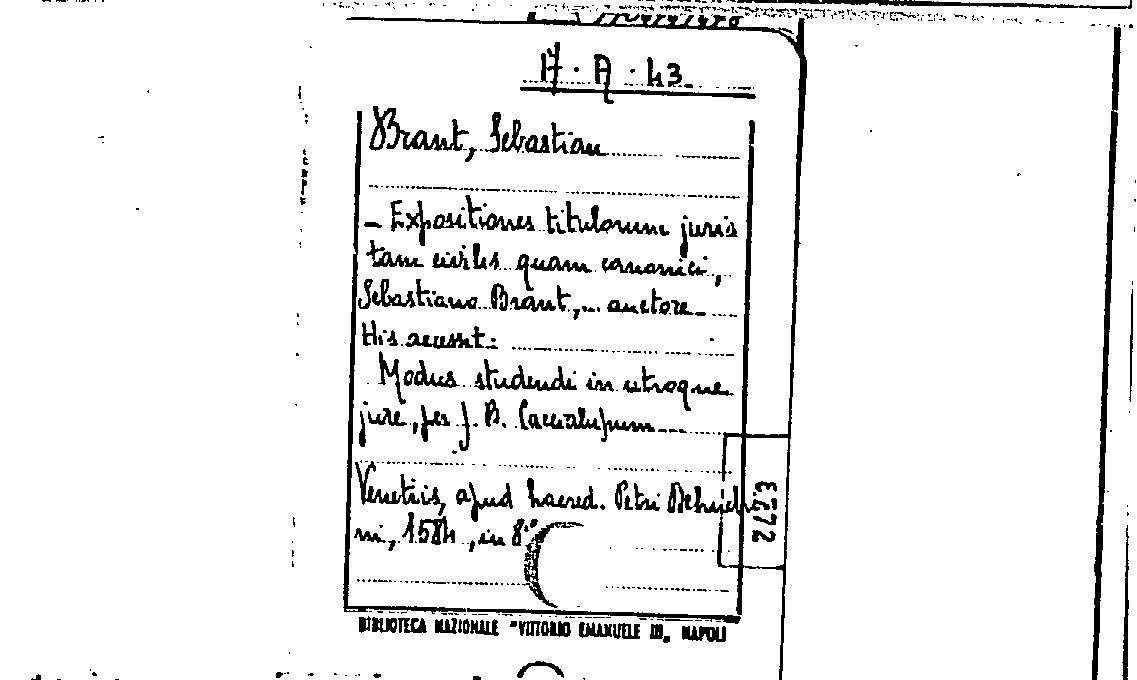 17 · A · 43
Brant, Sebastian
– Expositiones titulorum juris
tam civiles quam canonici,
Sebastiano Brant,... auctore
His accesset:
Modus studendi in utroque
jure, per J. B. Caccialupum...
Venetiis, apud haered. Petri Dehuchi
ni, 1584, in 8°
E.772
BIBLIOTECA NAZIONALE "VITTORIO EMANUELE III„ NAPOLI